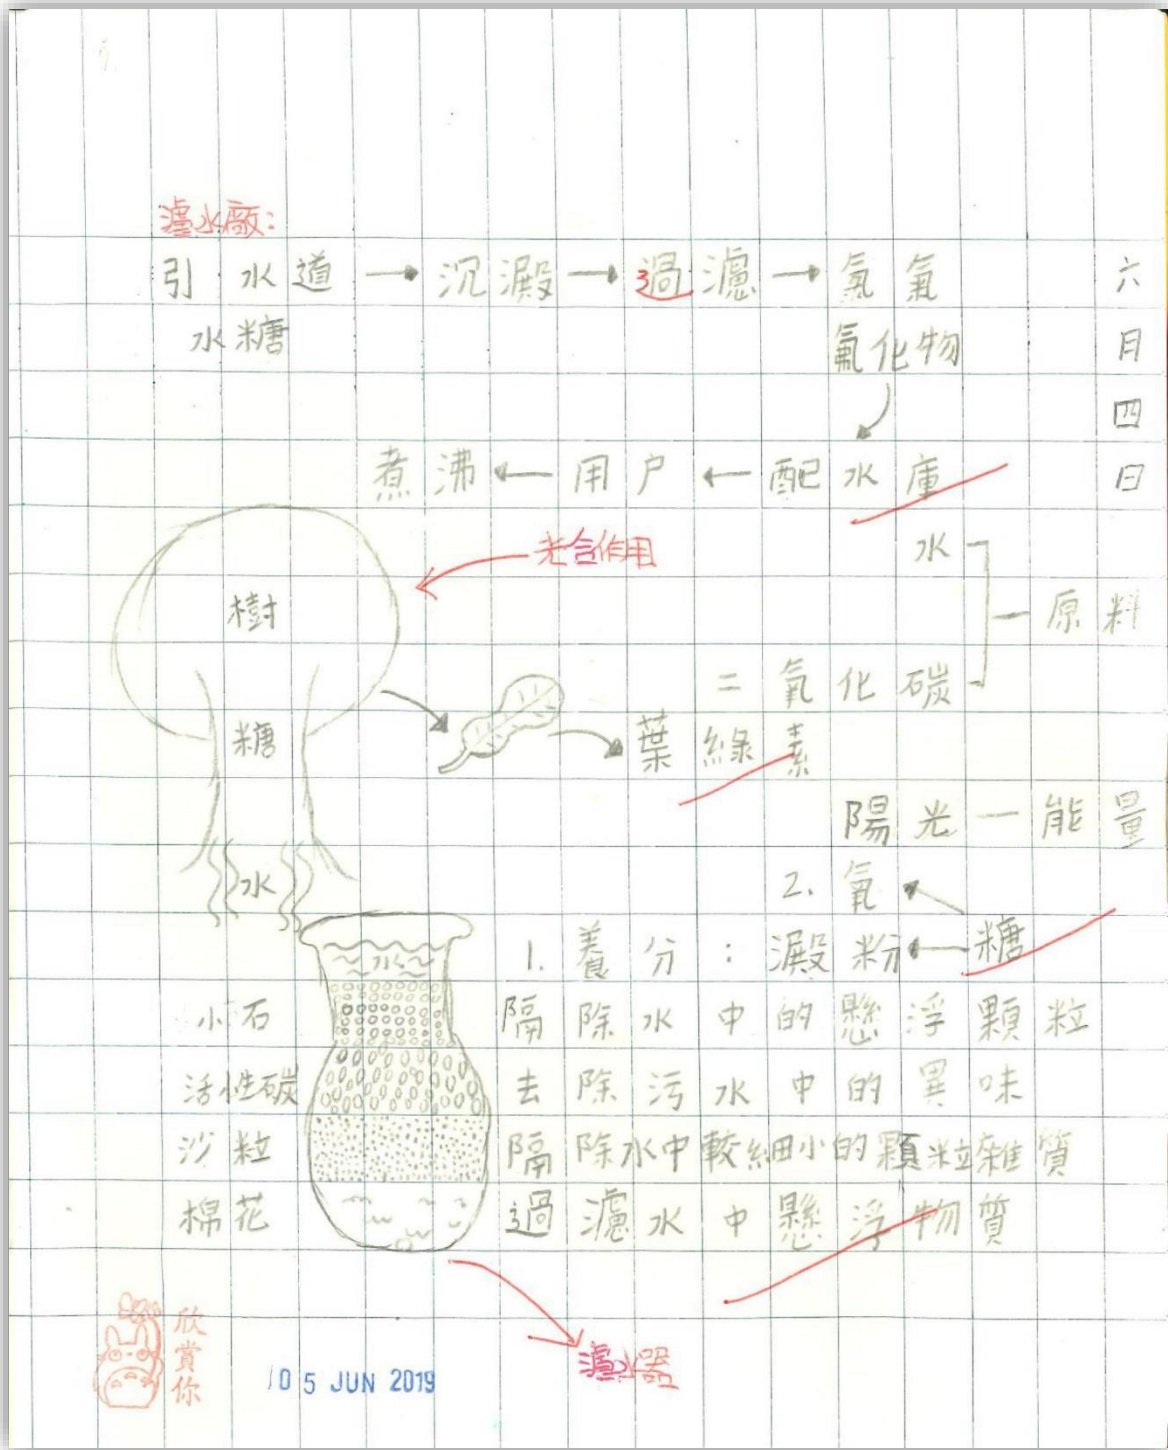 濾水廠:
六月四日
引水道→沉澱→過濾→氯氣
水糖
氟化物
煮沸←用户←配水庫
光合作用
水
原料
樹
二氧化碳
糖
葉綠素
陽光—能量
水
2.氧
1.養分:澱粉←糖
水
小石 隔除水中的懸浮顆粒
活性碳 去除污水中的異味
沙粒 隔除水中較細小的顆粒雜質
棉花 過濾水中懸浮物質
濾水器
欣賞你
05 JUN 2019